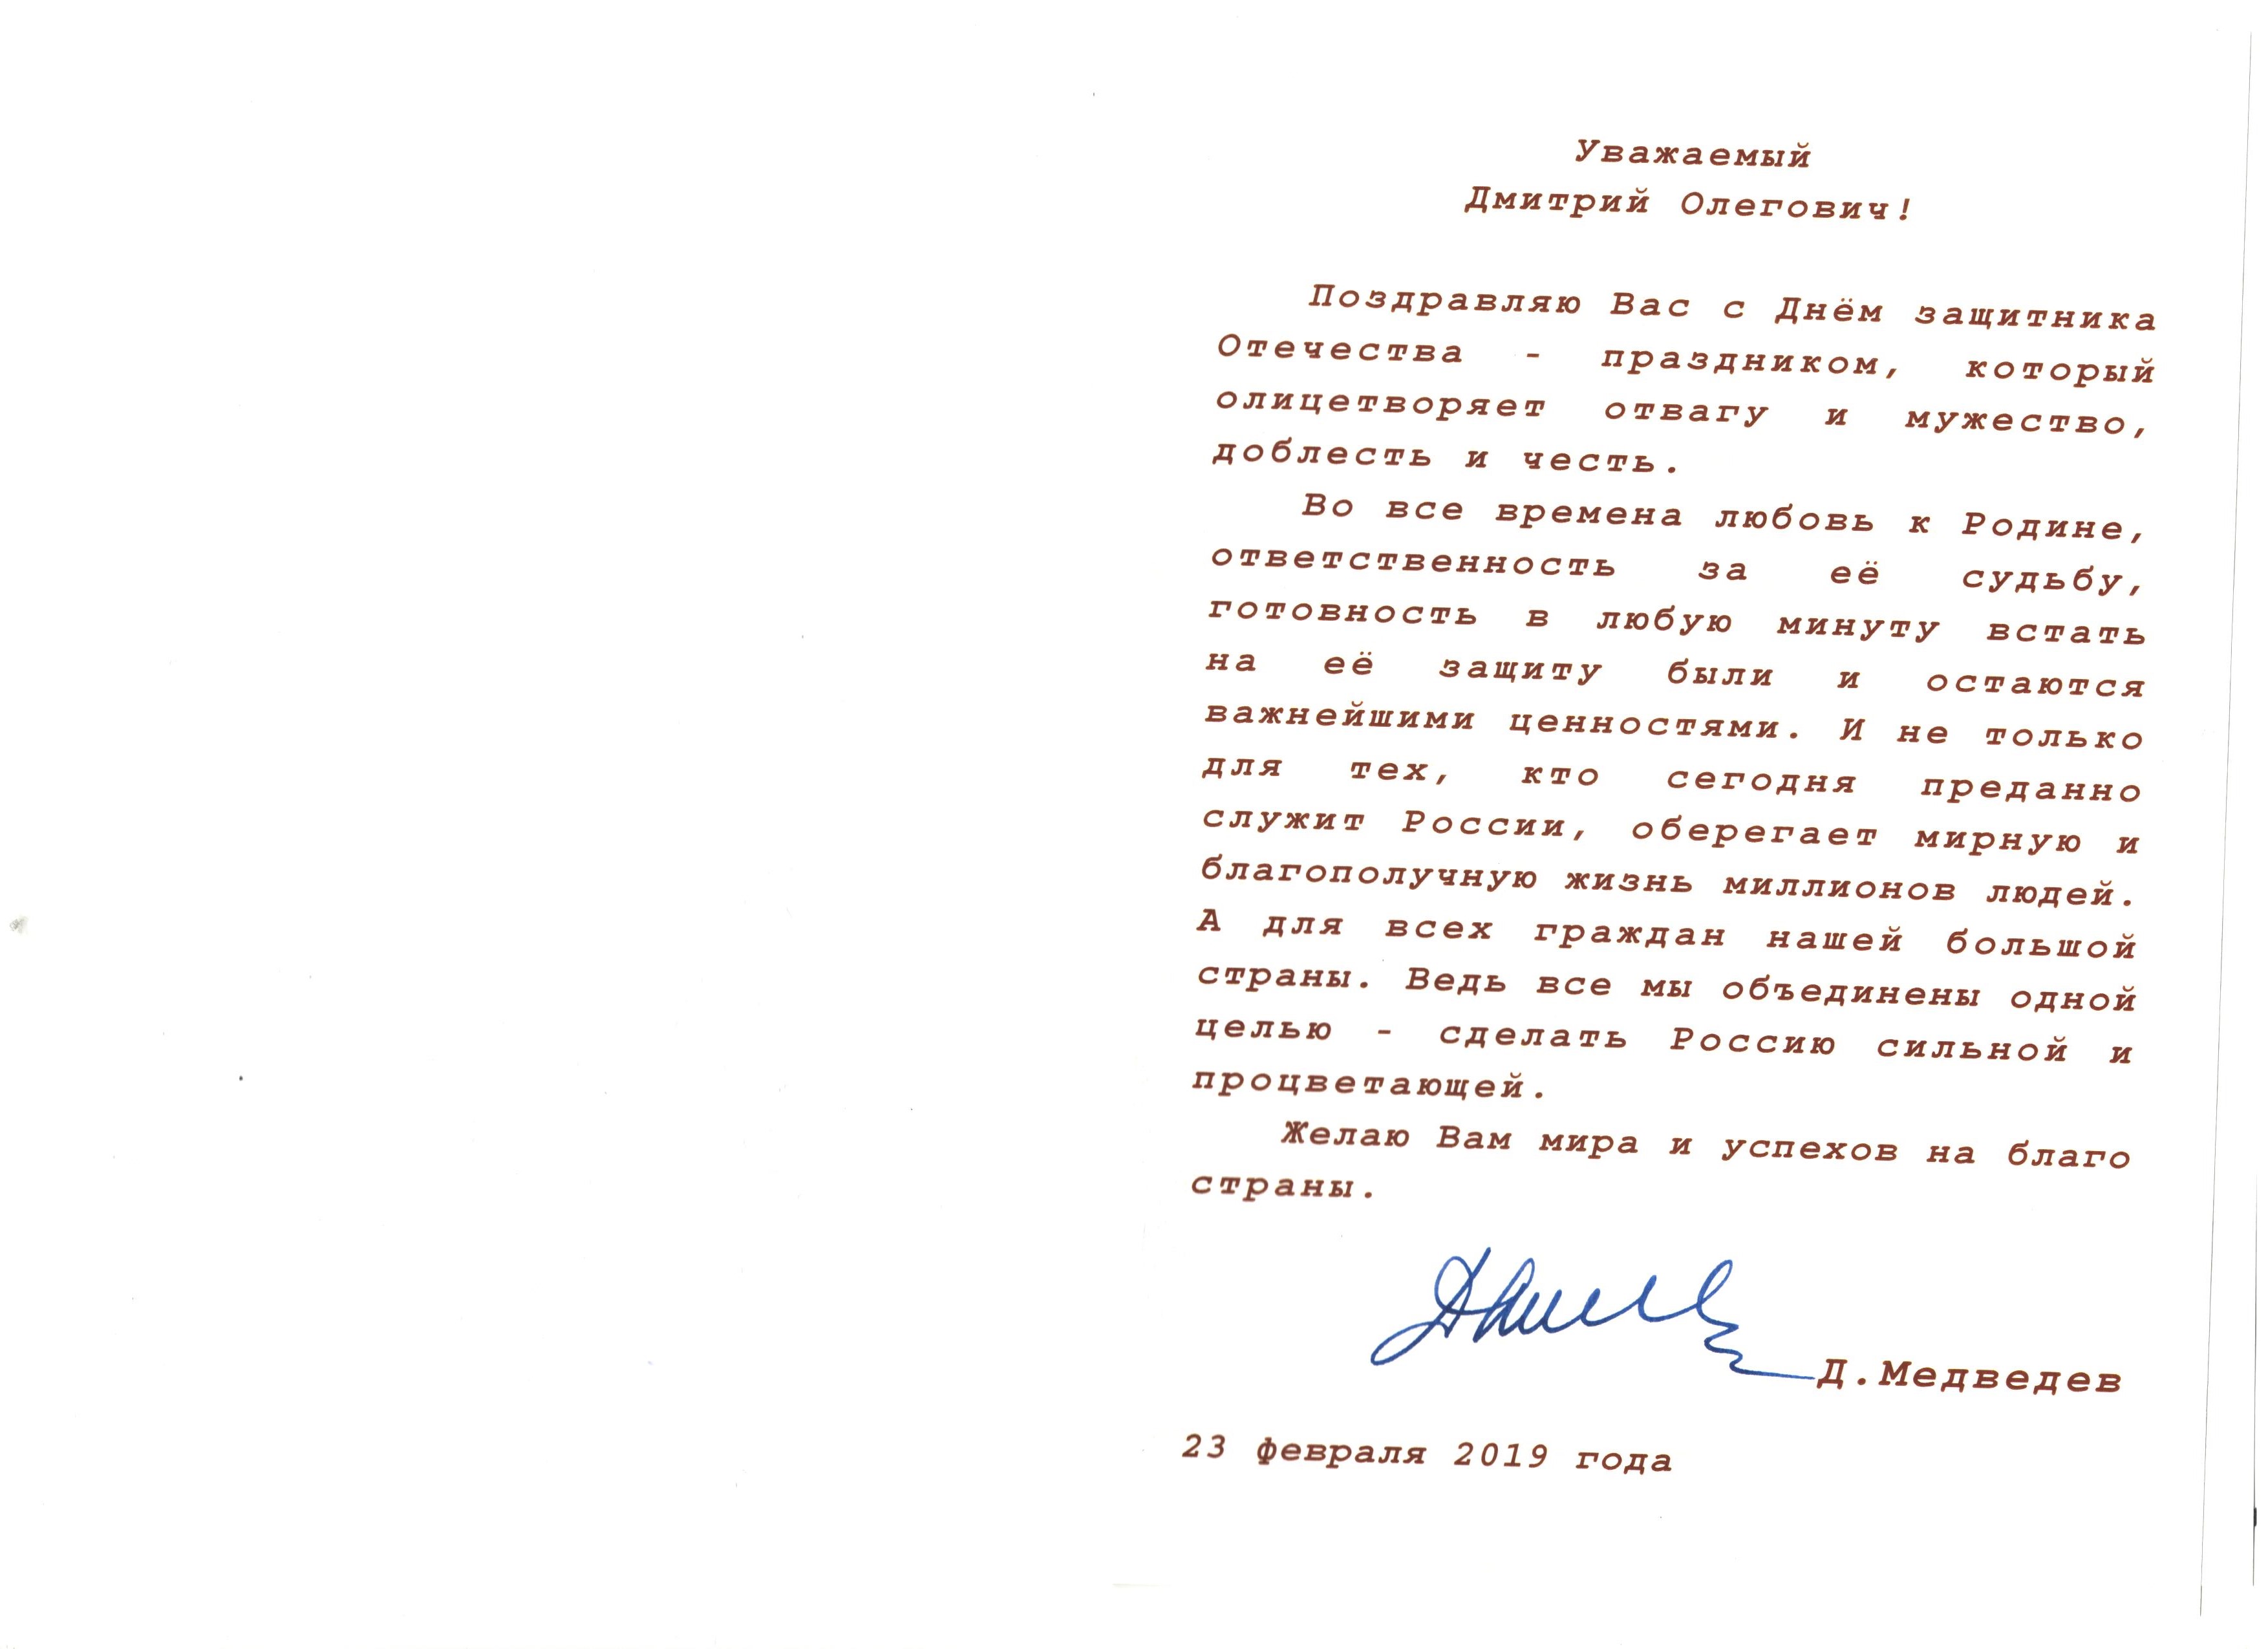 Уважаемый
Дмитрий Олегович!
Поздравляю Вас с Днём защитника
Отечества - праздником, который
олицетворяет отвагу и мужество,
доблесть и честь.
Во все времена любовь к Родине,
ответственность за её судьбу,
готовность в любую минуту встать
на её защиту были и остаются
важнейшими ценностями. И не только
для тех, кто сегодня преданно
служит России, оберегает мирную и
благополучную жизнь миллионов людей.
А для всех граждан нашей большой
страны. Ведь все мы объединены одной
целью - сделать Россию сильной и
процветающей.
Желаю Вам мира и успехов на благо
страны.
Д.Медведев
23 февраля 2019 года